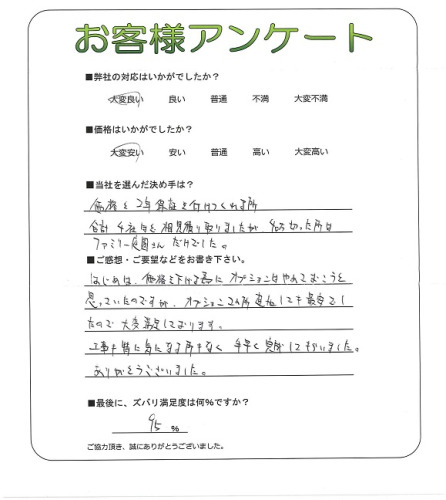 お客様アンケート
■弊社の対応はいかがでしたか？
大変良い 良い 普通 不満 大変不満
■価格はいかがでしたか？
大変安い 安い 普通 高い 大変高い
■当社を選んだ決め手は？
価格と2年保証を付けてくれる所
合計4社を相見積り取りましたが、
ファミリー庭園さんだけでした。
■ご感想・ご要望などをお書き下さい。
はじめは、価格を下げる為にオプションはやめておこうと
思っていたのですが、オプション2ヶ所追加しても最安でし
たので大変満足しております。
工事も特に気になる所もなく手早く完成してもらいました。
ありがとうございました。
■最後に、ズバリ満足度は何%ですか？
95 %
ご協力頂き、誠にありがとうございました。